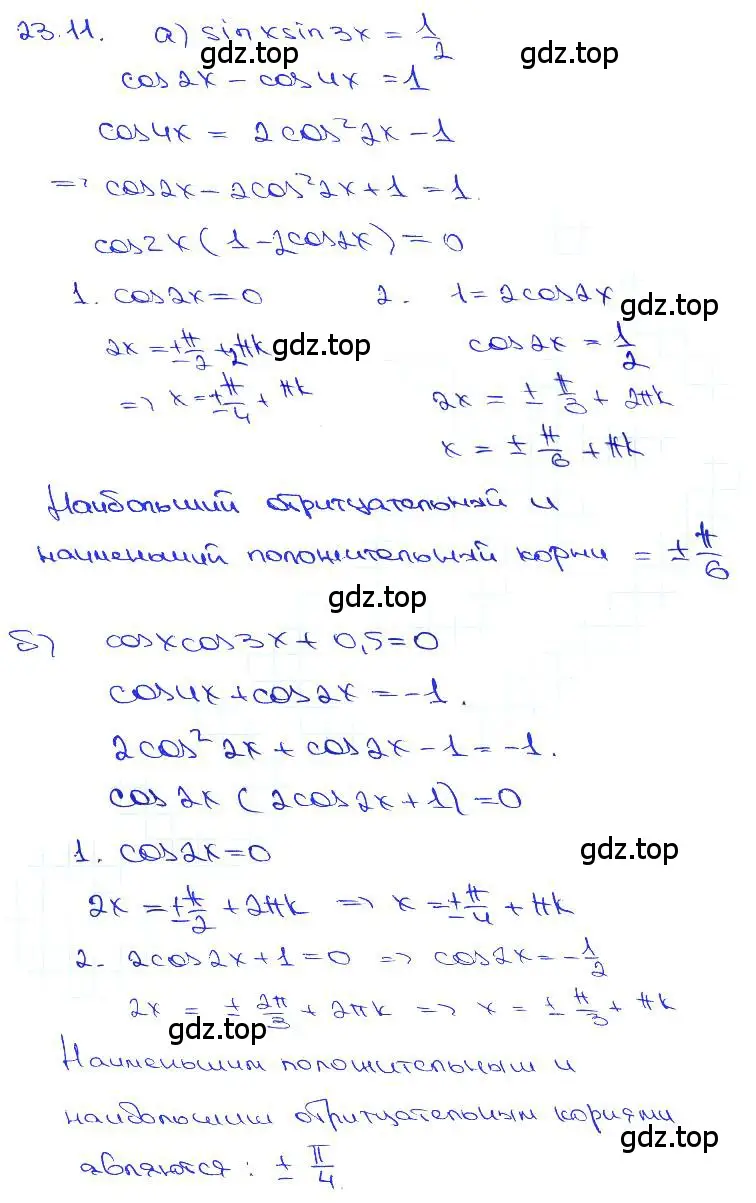 23.11. а) sinxsin3x = 1/2
gdz.top
cos2x - cos4x = 1
cos4x = 2cos²2x - 1
=> cos2x - 2cos²2x + 1 = 1.
cos2x(1 - 2cos2x) = 0
1. cos2x = 0
2x = ±π/2 + 2πk
gdz.top
=> x = ±π/4 + πk
2. 1 = 2cos2x
gdz.top
cos2x = 1/2
2x = ± π/3 + 2πk
x = ± π/6 + πk
Наибольший отрицательный и
наименьший положительный корни = ± π/6
gdz.top
б) cosxcos3x + 0,5 = 0
cos4x + cos2x = -1.
2cos²2x + cos2x - 1 = -1.
cos2x(2cos2x + 1) = 0
1. cos2x = 0
gdz.top
2x = ±π/2 + 2πk => x = ±π/4 + πk
2. 2cos2x + 1 = 0 => cos2x = -1/2
2x = ± 2π/3 + 2πk => x = ± π/3 + πk
gdz.top
Наименьшим положительным и
наибольшим отрицательным корнями
gdz.top
являются: ± π/4.